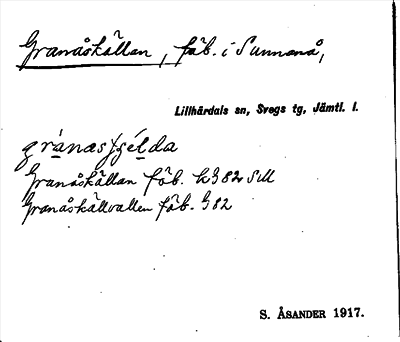 Granåskällan, fäb. i Sunnanå,
Lillhärdals sn, Svegs tg, Jämtl. l.
gránasʃšélda
Granåskällan fäb. kg 82 Sill
Granåskällvallen fäb. g 82
S. ÅSANDER 1917.